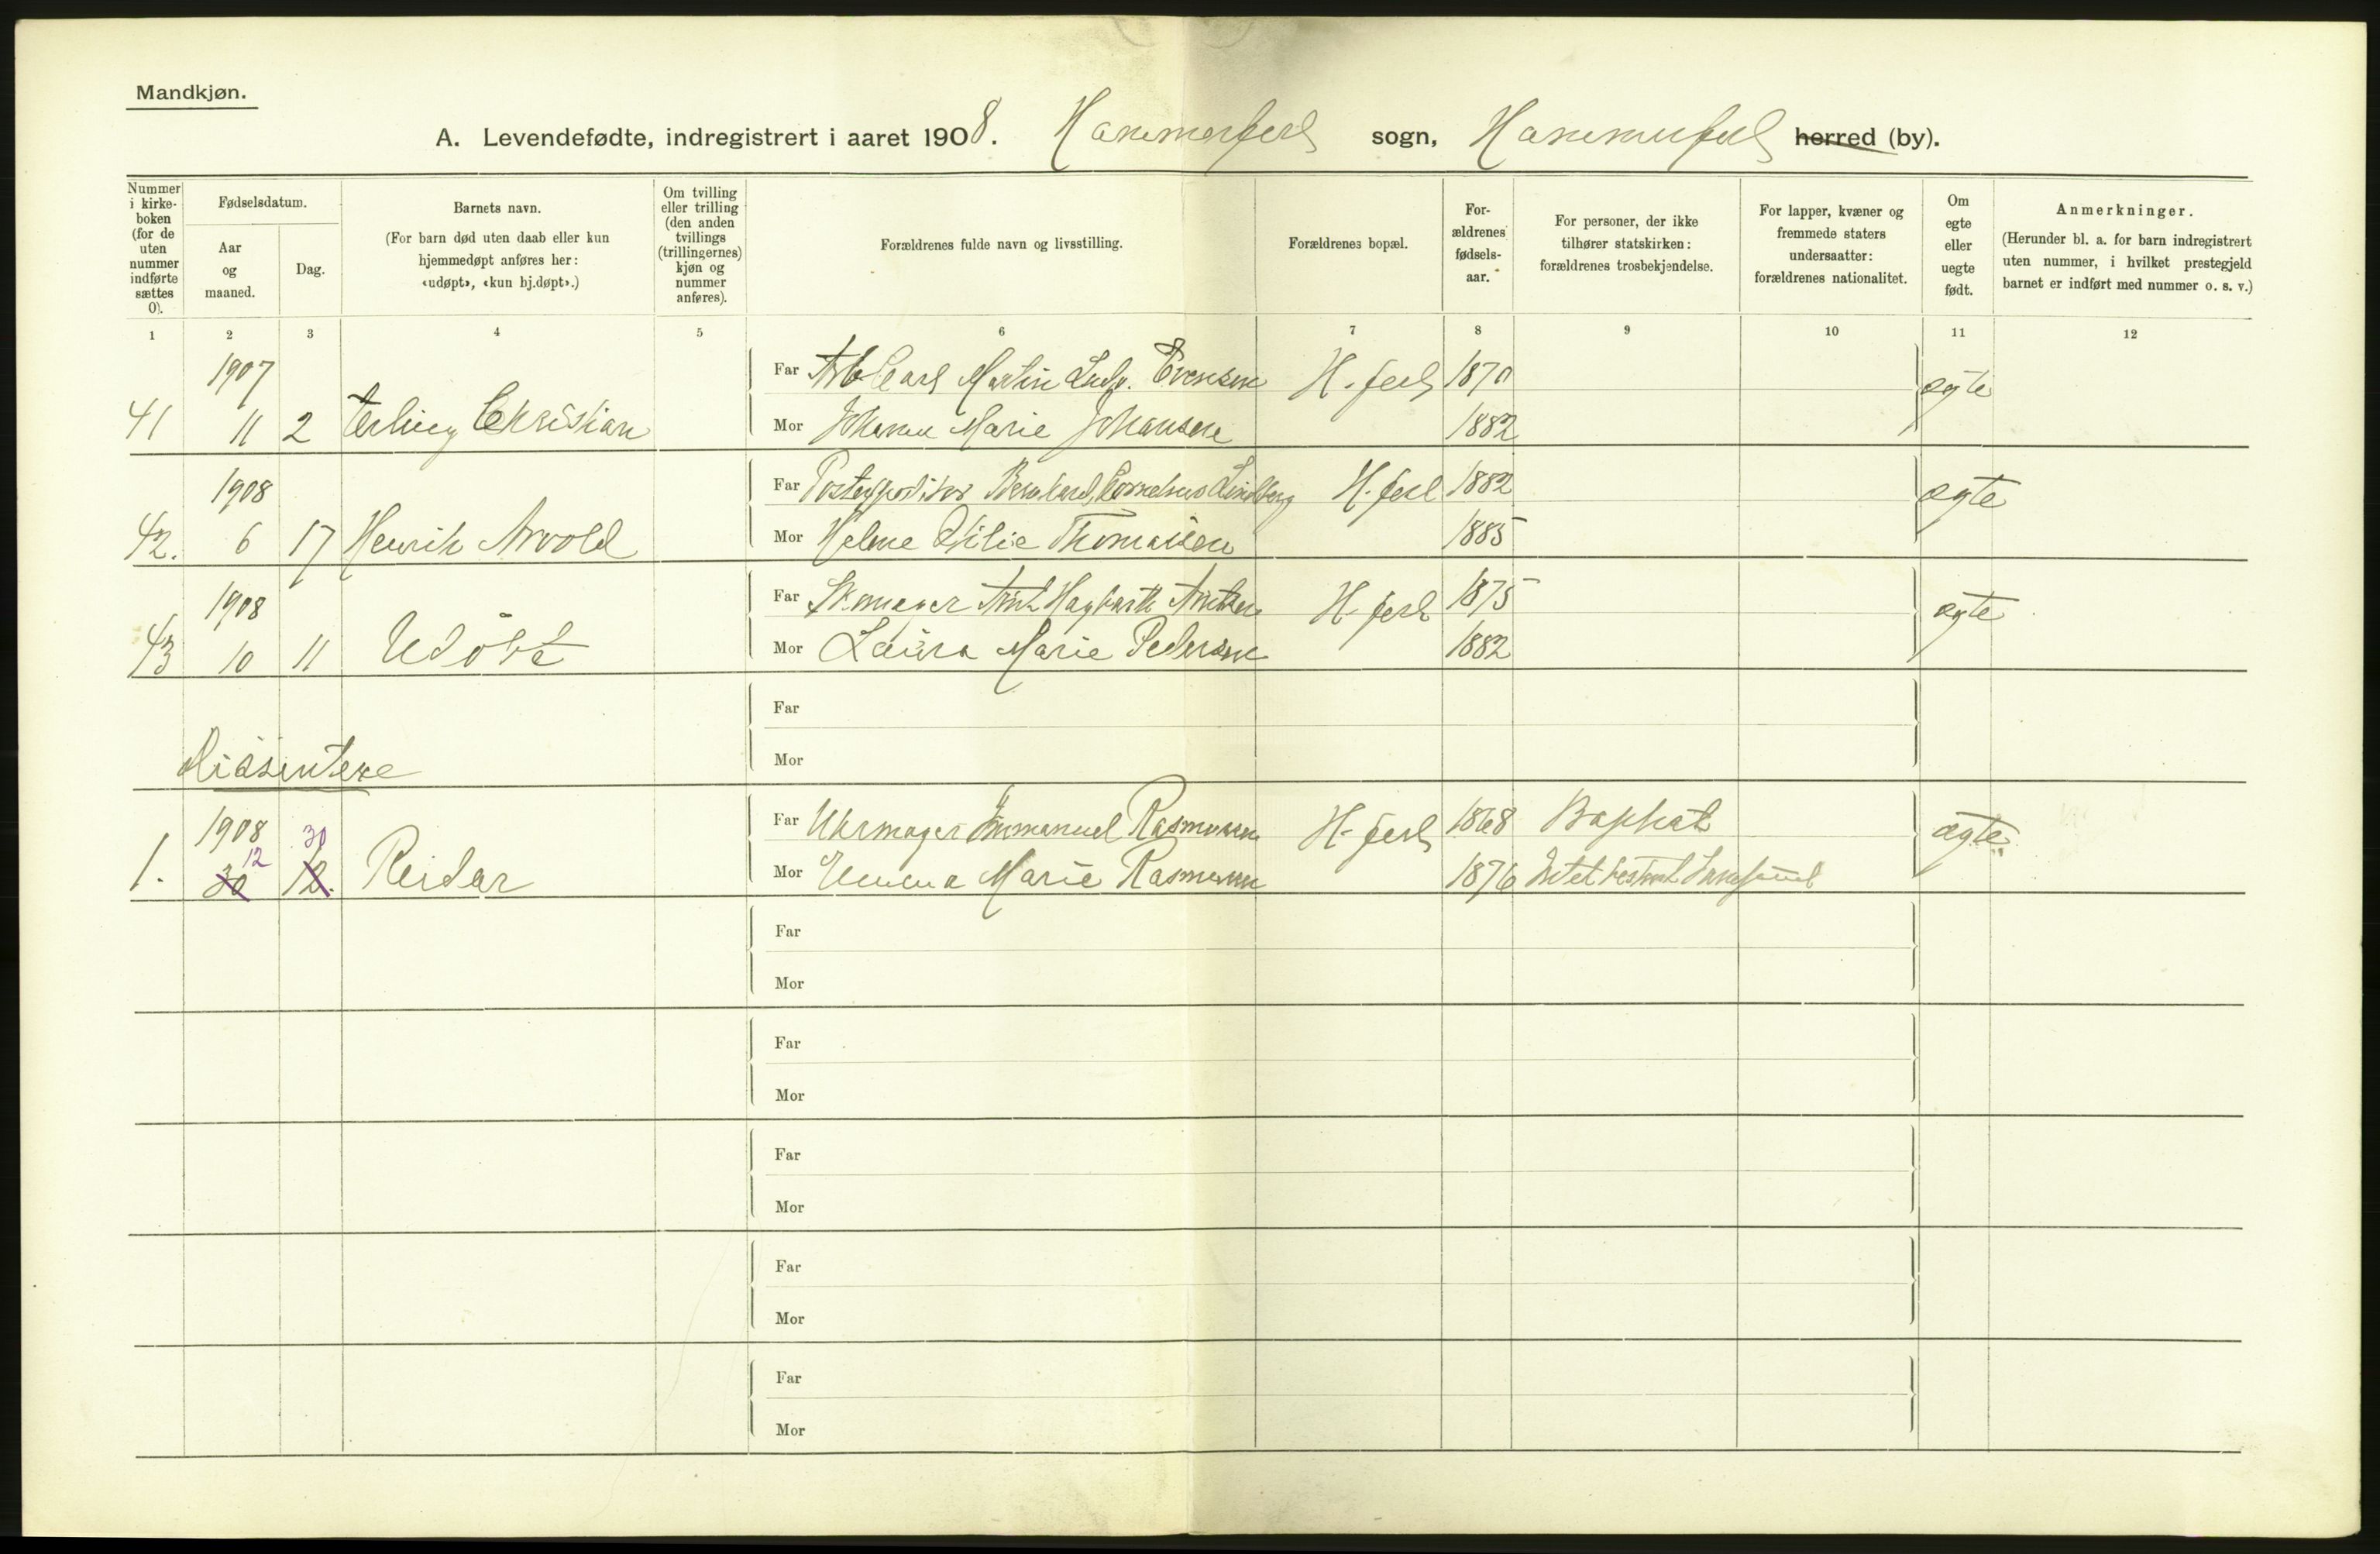 Mandkjøn.
A. Levendefødte, indregistrert i aaret 1908. Hammerfest sogn, Hammerfest herred (by).
Nummer i kirke-boken (for de uten nummer indførte sættes 0).
Fødselsdatum.
Aar og maaned.
Dag.
Barnets navn.
(For barn død uten daab eller kun hjemmedøpt anføres her: «udøpt», «kun hj.døpt».)
Om tvilling eller trilling (den anden tvillings (trillingernes) kjøn og nummer anføres).
Forældrenes fulde navn og livsstilling.
Forældrenes bopæl.
For-ældrenes fødsels-aar.
For personer, der ikke tilhører statskirken: forældrenes trosbekjendelse.
For lapper, kvæner og fremmede staters undersaatter: forældrenes nationalitet.
Om egte eller uegte født.
Anmerkninger.
(Herunder bl. a. for barn indregistrert uten nummer, i hvilket prestegjeld barnet er indført med nummer o. s. v.)
1 2 3 4 5 6 7 8 9 10 11 12
1907 Far Arb Carl Martin Ludv. Evensen H.fest 1870 ægte
41 11 2 Erling Christian Mor Johanna Marie Johansen 1882
1908 Far Postexpeditør Bernhard Cornelius Lindberg H.fest 1882 ægte
42. 6 17 Henrik Arvold Mor Helene Otilie Thomassen 1885
1908 Far Skomager Arnt Hagbarth Arntzen H.fest 1875 ægte
43 10 11 Udøbt Mor Laura Marie Pedersen 1882
Far
Dissentere Mor
1908 30 Far Uhrmager Immanuel Rasmussen H.fest 1868 Baptist ægte
1. 30 12 12. Reidar Mor Emma Marie Rasmussen 1876
Far
Mor
Far
Mor
Far
Mor
Far
Mor
Far
Mor